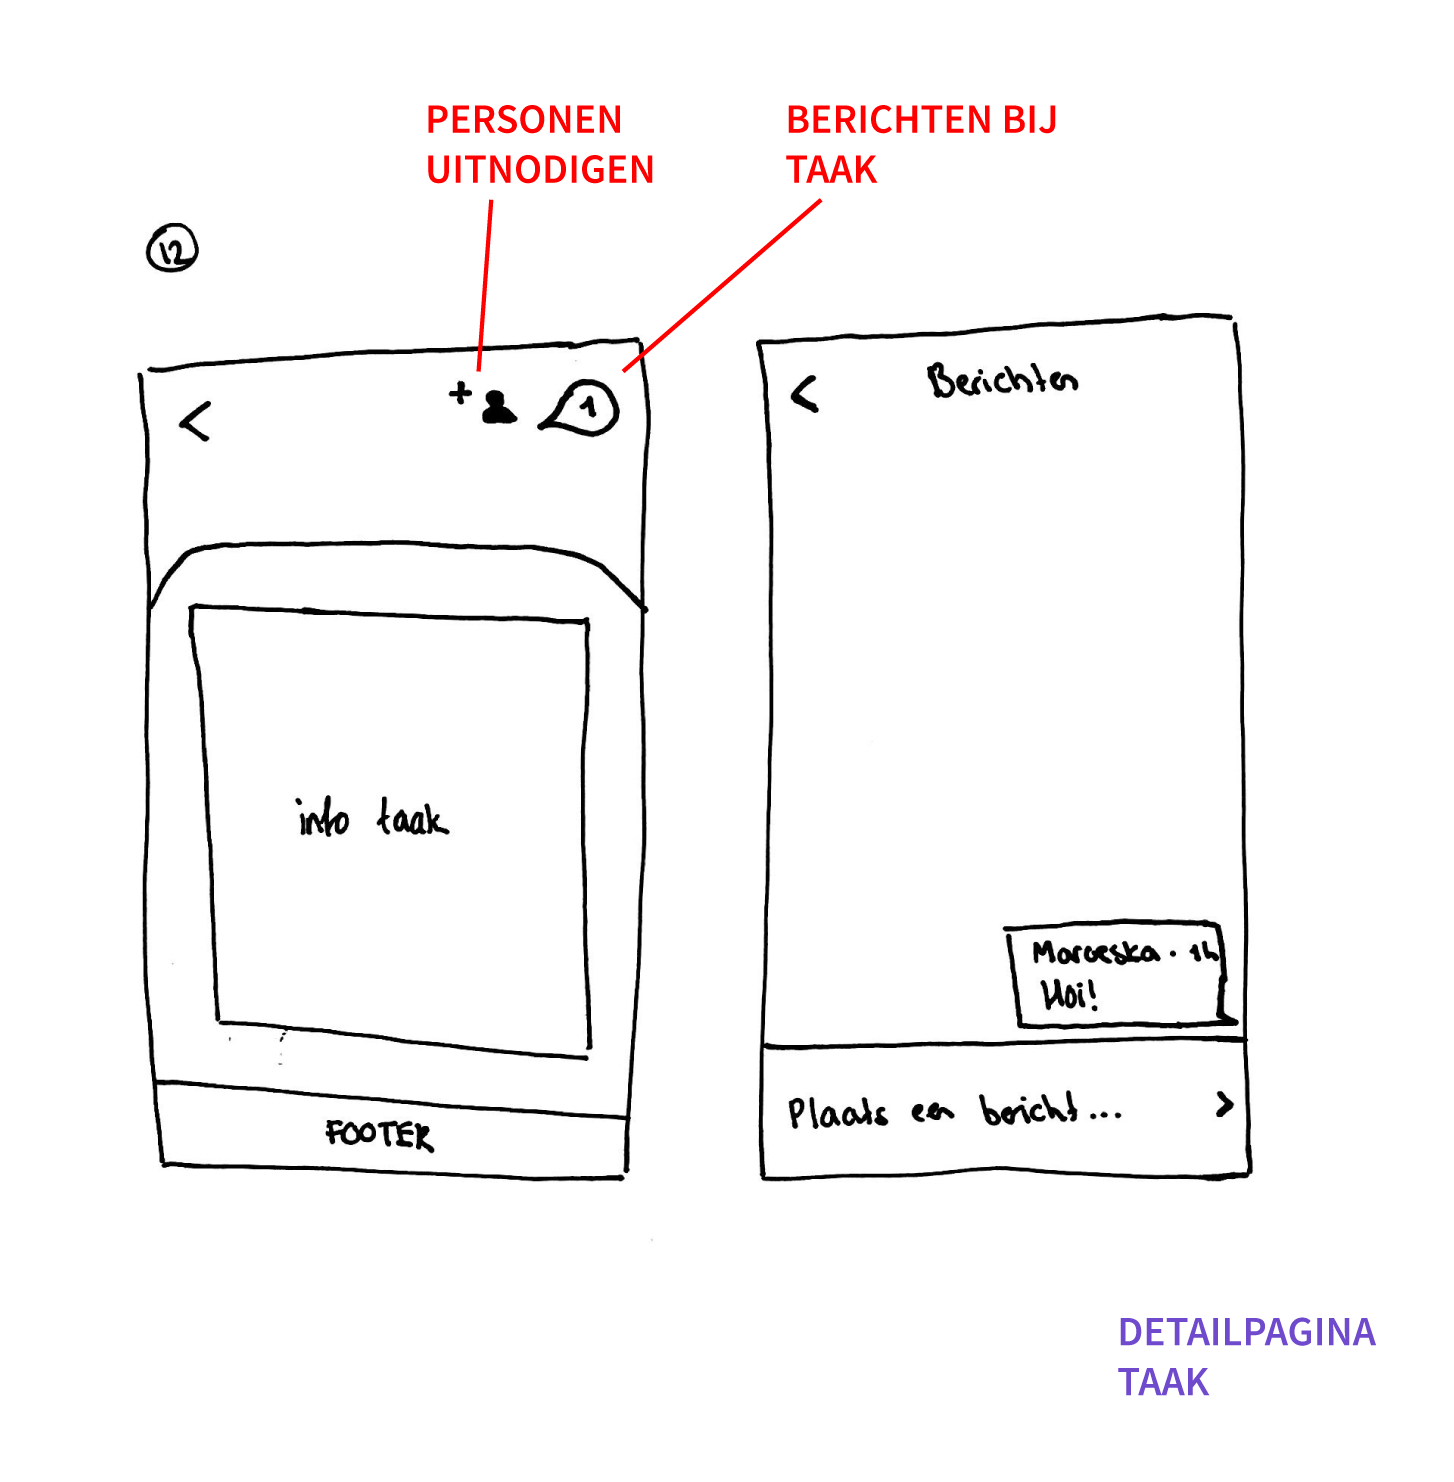 PERSONEN
UITNODIGEN
BERICHTEN BIJ
TAAK
12
+
1
<
info taak
FOOTER
<
Berichten
Maroeska · 1h
Hoi!
Plaats een bericht... >
DETAILPAGINA
TAAK